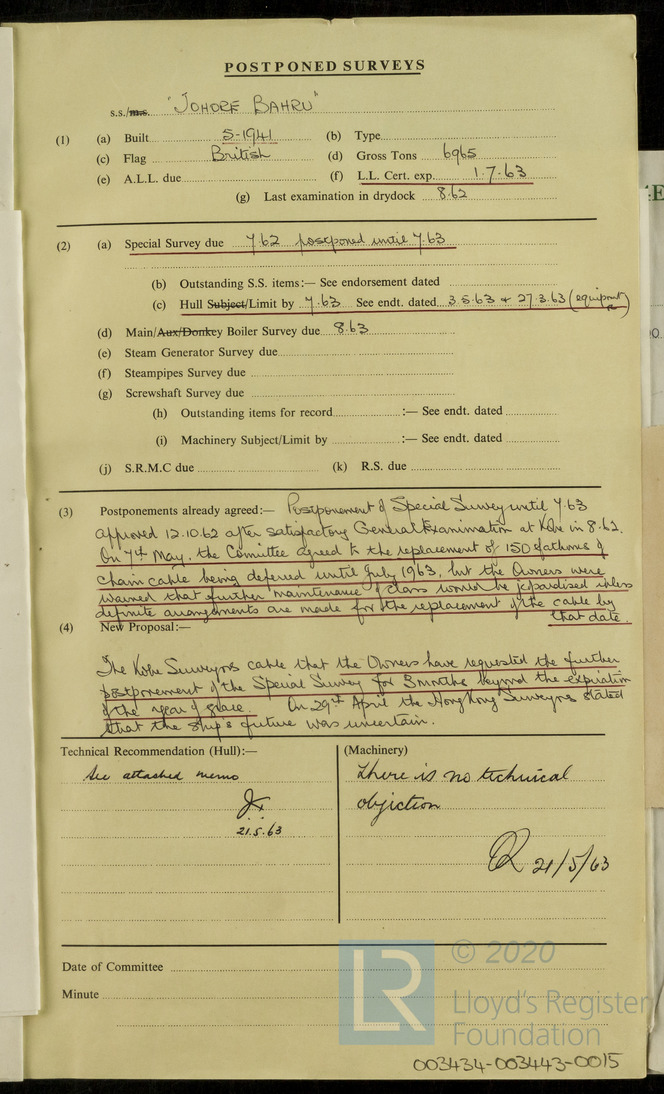 POSTPONED SURVEYS
s.s./m.s. "JOHORE BAHRU"
(1) (a) Built 5-1941 (b) Type
(c) Flag British (d) Gross Tons 6965
(e) A.L.L. due (f) L.L. Cert. exp. 1.7.63
(g) Last examination in drydock 8.62
(2) (a) Special Survey due 7.62 postponed until 7.63
(b) Outstanding S.S. items:— See endorsement dated
(c) Hull Subject/Limit by 7.63 See endt. dated 3.5.63 + 27.3.63 (equipment)
(d) Main/Aux/Donkey Boiler Survey due 8.63
(e) Steam Generator Survey due
(f) Steampipes Survey due
(g) Screwshaft Survey due
(h) Outstanding items for record :— See endt. dated
(i) Machinery Subject/Limit by :— See endt. dated
(j) S.R.M.C due (k) R.S. due
(3) Postponements already agreed:— Postponement of Special Survey until 7.63
approved 12.10.62 after satisfactory General Examination at Kobe in 8.62.
On 7th May, the Committee agreed to the replacement of 150 fathoms of
chain cable being deferred until July 1963, but the Owners were
warned that further maintenance of class would be jeopardised unless
definite arrangements are made for the replacement of the cable by
that date.
(4) New Proposal:—
The Kobe Surveyors cable that the Owners have requested the further
postponement of the Special Survey for 3 months beyond the expiration
of the year of grace. On 29th April the Hong Kong Surveyors stated
that the ship's future was uncertain.
Technical Recommendation (Hull):— (Machinery)
See attached memo
There is no technical
objection
21.5.63
21/5/63
Date of Committee
Minute
LR
© 2020
Lloyd's Register
Foundation
003434-003443-0015